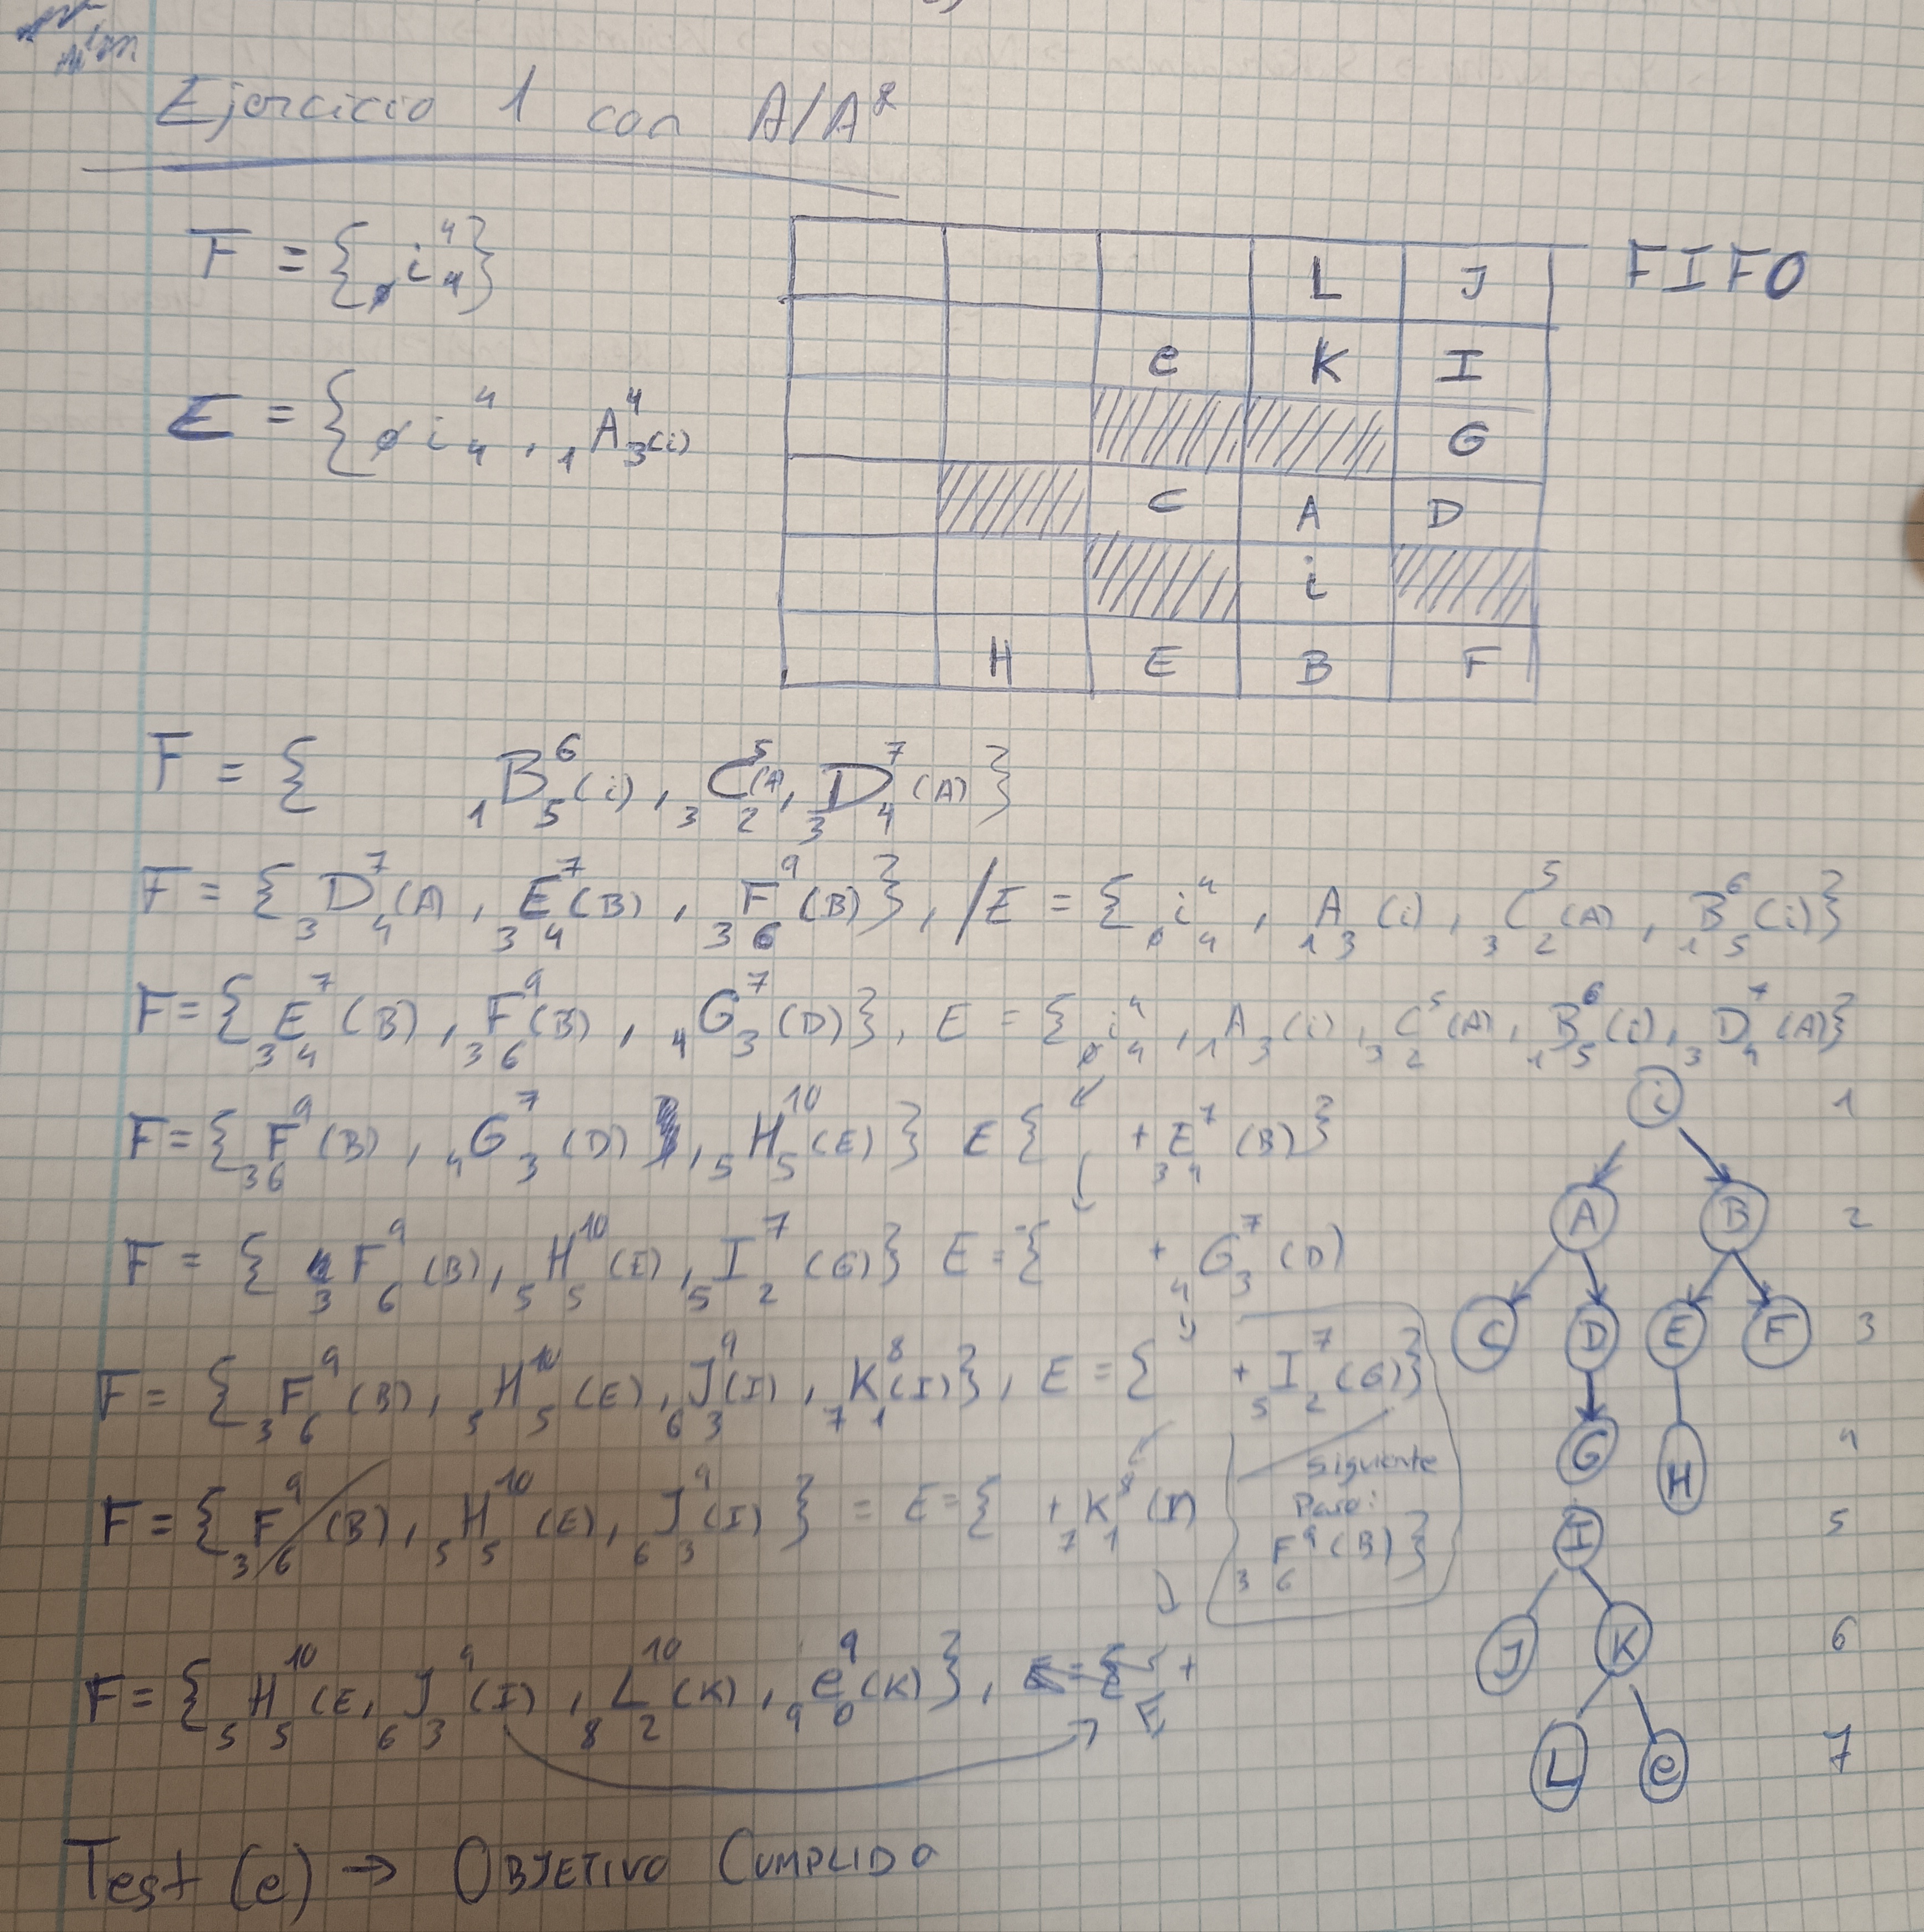 Ejercicio 1 con A/A*
F = { 0 i 4 4 }
E = { 0 i 4 4 , 1 A 4 3(i)
FIFO
L J
e K I
G
C A D
i
H E B F
F = { 1 B 6 5 (i) , 3 C 5 2 (A) , 3 D 7 4 (A) }
F = { 3 D 7 4 (A) , 3 E 7 4 (B) , 3 F 9 6 (B) } , / E = { 0 i 4 4 , 1 A 3 (i) , 3 C 5 2 (A) , 1 B 6 5 (i) }
F = { 3 E 7 4 (B) , 3 F 9 6 (B) , 4 G 7 3 (D) } , E = { 0 i 4 4 , 1 A 3 (i) , 3 C 5 2 (A) , 1 B 6 5 (i) , 3 D 7 4 (A) }
F = { 3 F 9 6 (B) , 4 G 7 3 (D) , 5 H 10 5 (E) } E { + 3 E 7 4 (B) }
F = { 3 F 9 6 (B) , 5 H 10 5 (E) , 5 I 7 2 (G) } E = { + 4 G 7 3 (D)
F = { 3 F 9 6 (B) , 5 H 10 5 (E) , 6 J 9 3 (I) , 7 K 8 1 (I) } , E = { + 5 I 7 2 (G) }
F = { 3 F 9 6 (B) , 5 H 10 5 (E) , 6 J 9 3 (I) } = E = { + 7 K 8 1 (I)
Siguiente
Paso:
3 F 9 6 (B) }
F = { 5 H 10 5 (E , 6 J 9 3 (I) , 8 L 10 2 (K) , 9 e 9 0 (K) } , E = { +
Test (e) → OBJETIVO CUMPLIDO
i 1
A B 2
C D E F 3
G H 4
I 5
J K 6
L e 7